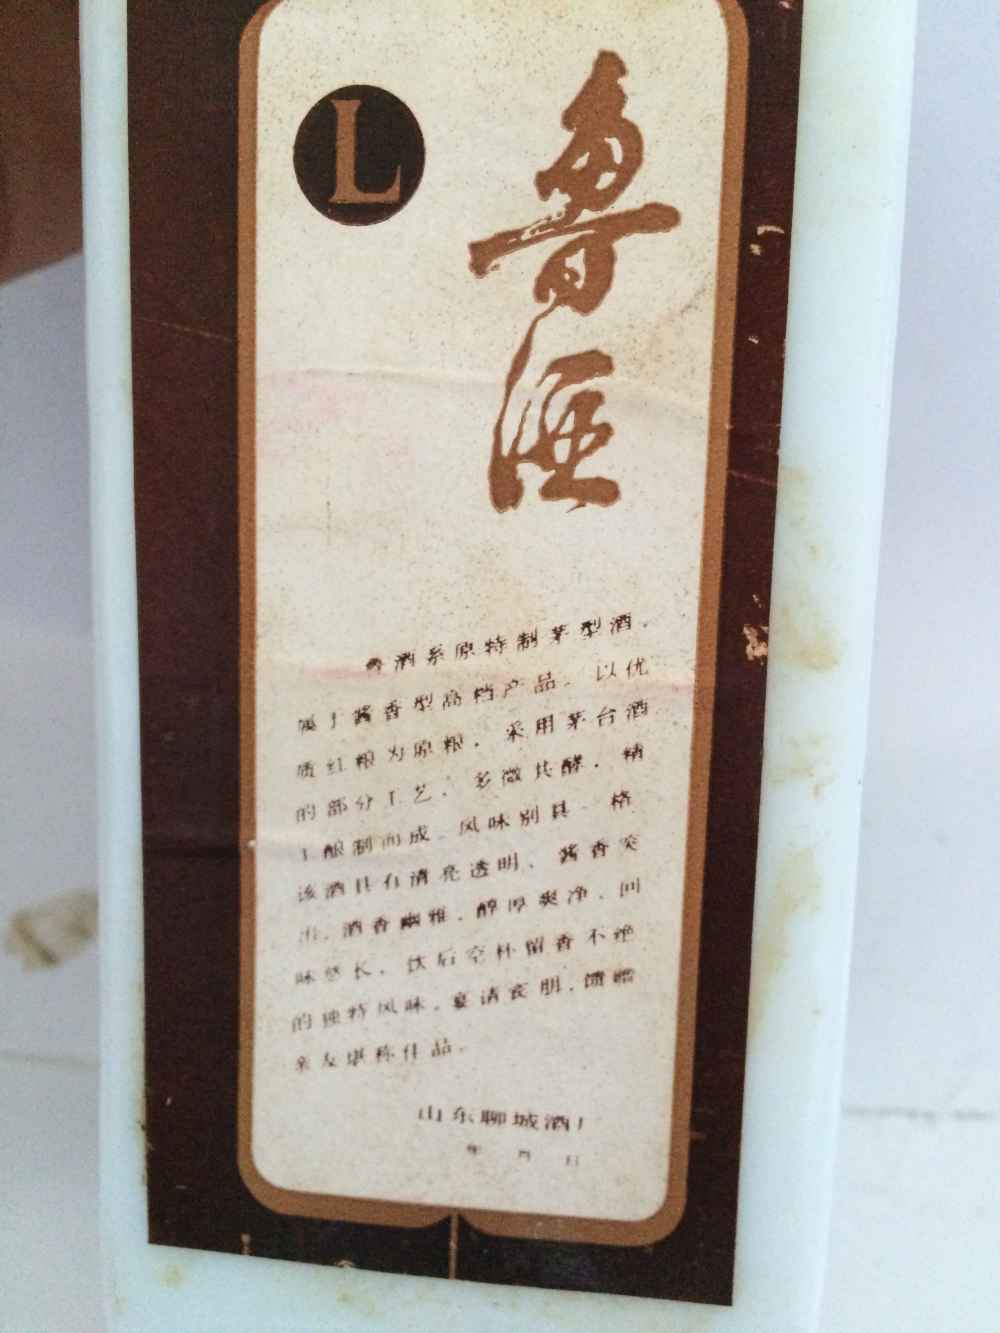 L
鲁酒
鲁酒系原特制茅型酒，
属于酱香型高档产品。以优
质红粮为原粮，采用茅台酒
的部分工艺，多微共酵，精
工酿制而成。风味别具一格
该酒具有清亮透明、酱香突
出，酒香幽雅，醇厚爽净，回
味悠长，饮后空杯留香不绝
的独特风味。宴请宾朋，馈赠
亲友堪称佳品。
山东聊城酒厂
年 月 日